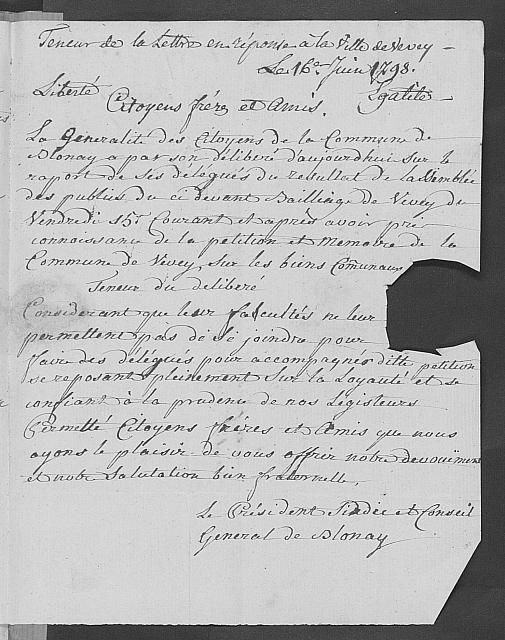 Teneur de la Lettre en réponse à la Ville de Vevey
Le 16e Juin 1798.
Liberté Egalité
Citoyens frères et Amis.
La Generalité des Citoyens de la Commune de
Blonay a par son déliberé d'aujourdhui sur le
raport de ses délegués du resultat de lassemblée
des publics du ci devant Bailliage de Vevey du
Vendredi 15e Courant et après avoir pris
connoissance de la petition et Memoire de la
Commune de Vevey, sur les biens Comunaux
Teneur du deliberé
Considerant que leur facultés ne leur
permettent pas de se joindre pour
faire des délegués pour accompagner ditte petition
se reposant pleinement sur la Loyauté et se
confiant à la prudence de nos Legisteurs
Permetté Citoyens frères et Amis que nous
ayons le plaisir de vous offrir notre devouiment
et notre Salutation bien fraternelle.
Le Président Sindic et Conseil
General de Blonay